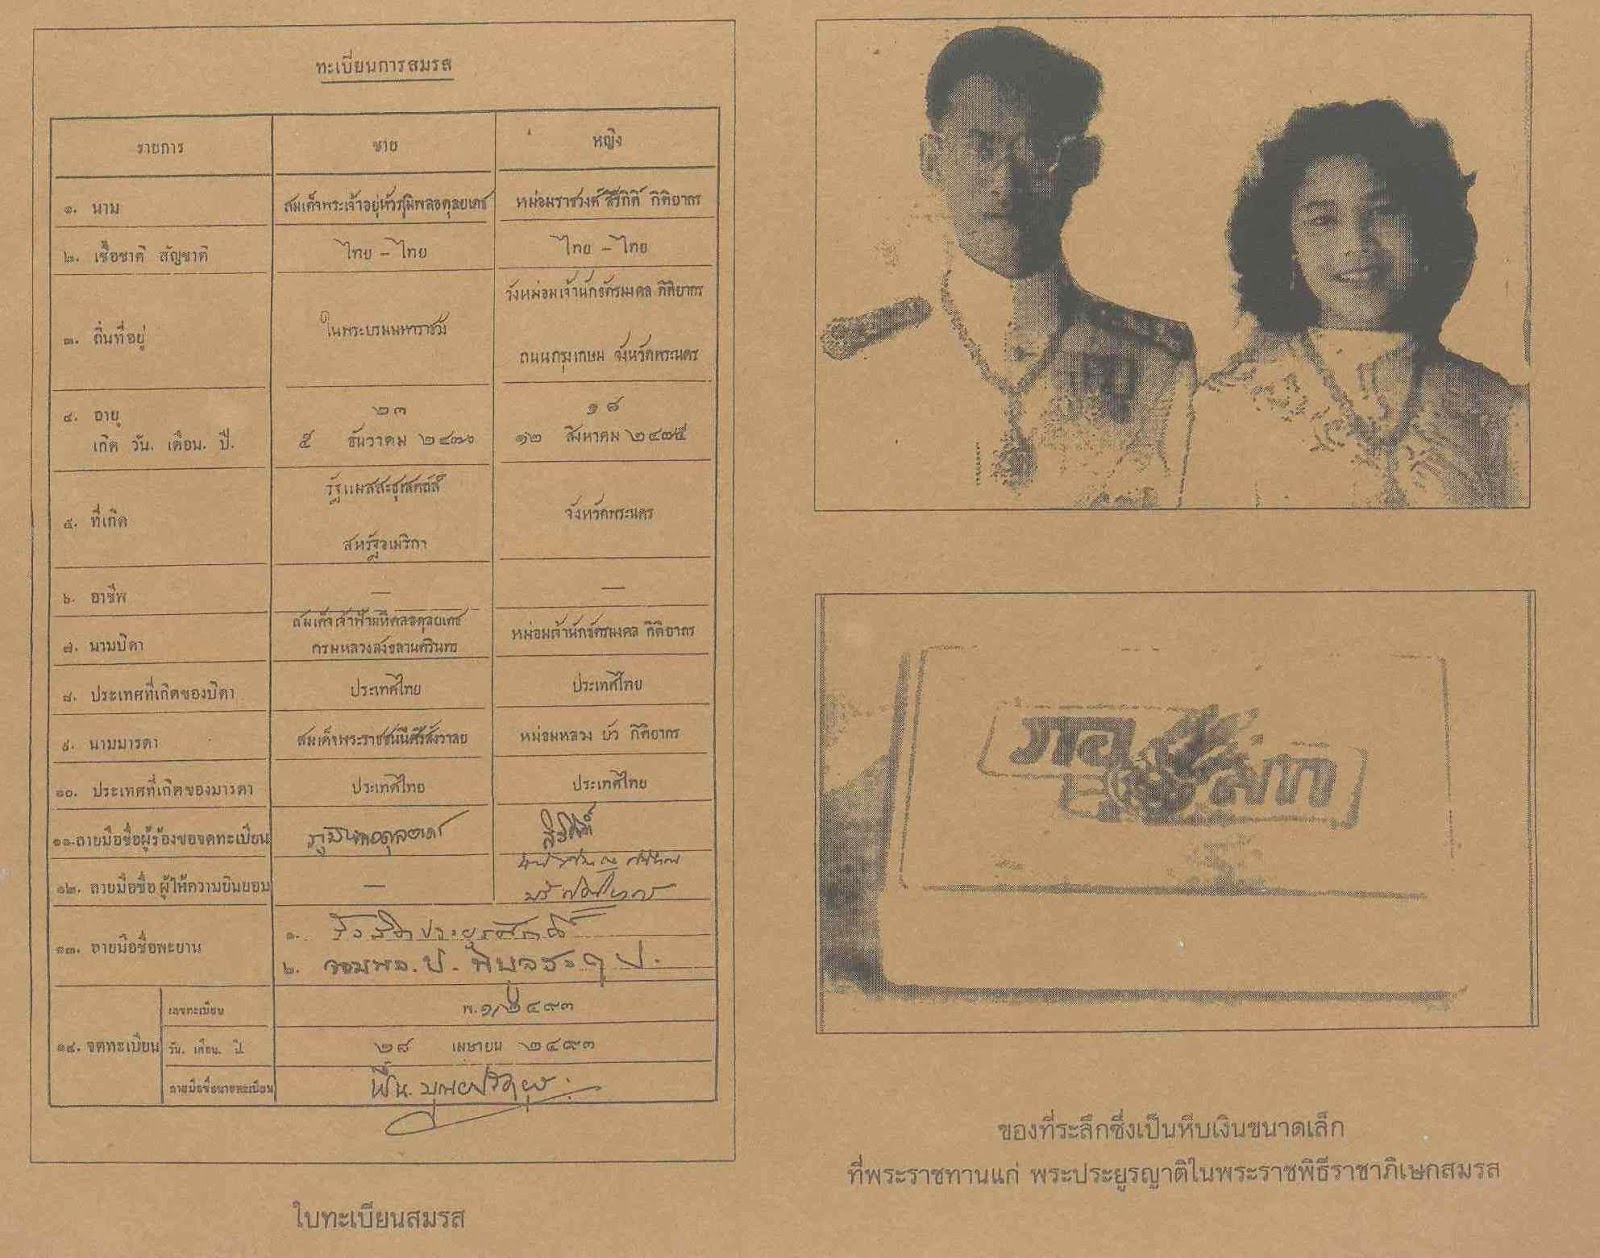 ทะเบียนการสมรส
รายการ ชาย หญิง
๑. นาม สมเด็จพระเจ้าอยู่หัวภูมิพลอดุลยเดช หม่อมราชวงศ์ สิริกิติ์ กิติยากร
๒. เชื้อชาติ สัญชาติ ไทย – ไทย ไทย – ไทย
๓. ถิ่นที่อยู่ ในพระบรมมหาราชวัง วังหม่อมเจ้านักขัตรมงคล กิติยากร
ถนนกรุงเกษม จังหวัดพระนคร
๔. อายุ ๒๓ ๑๘
เกิด วัน. เดือน. ปี. ๕ ธันวาคม ๒๔๗๐ ๑๒ สิงหาคม ๒๔๗๕
๕. ที่เกิด รัฐแมสสะชูเสตส์ส์ จังหวัดพระนคร
สหรัฐอเมริกา
๖. อาชีพ — —
๗. นามบิดา สมเด็จเจ้าฟ้ามหิดลอดุลยเดช หม่อมเจ้านักขัตรมงคล กิติยากร
กรมหลวงสงขลานครินทร
๘. ประเทศที่เกิดของบิดา ประเทศไทย ประเทศไทย
๙. นามมารดา สมเด็จพระราชชนนีศรีสังวาลย หม่อมหลวง บัว กิติยากร
๑๐. ประเทศที่เกิดของมารดา ประเทศไทย ประเทศไทย
๑๑. ลายมือชื่อผู้ร้องขอจดทะเบียน ภูมิพลอดุลยเดช สิริกิติ์
๑๒. ลายมือชื่อ ผู้ให้ความยินยอม —
๑๓. ลายมือชื่อพะยาน ๑. รังสิตประยูรศักดิ์
๒. จอมพล.ป. พิบูลสงคราม
๑๔. จดทะเบียน เลขทะเบียน พ.๑/๒๔๙๓
วัน. เดือน. ปี ๒๘ เมษายน ๒๔๙๓
ลายมือชื่อนายทะเบียน ฟื้น. บุณยปรัตยุธ.
ใบทะเบียนสมรส
ภอ
สก
ของที่ระลึกซึ่งเป็นหีบเงินขนาดเล็ก
ที่พระราชทานแก่ พระประยูรญาติในพระราชพิธีราชาภิเษกสมรส